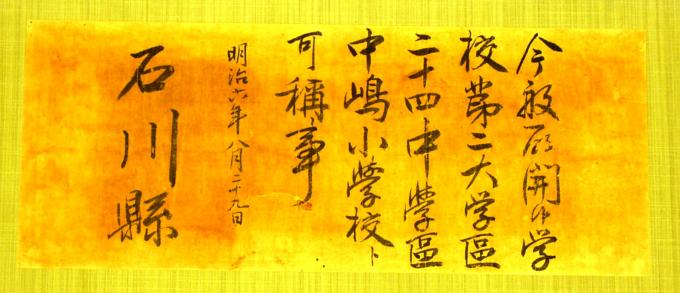 今般願開小学
校第二大学區
二十四中學區
中嶋小學校ト
可稱事
明治六年八月二十九日
石川縣